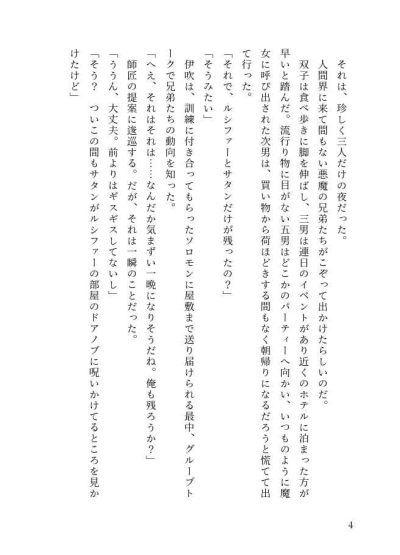 それは、珍しく三人だけの夜だった。
人間界に来て間もない悪魔の兄弟たちがこぞって出かけたらしいのだ。
双子は食べ歩きに脚を伸ばし、三男は連日のイベントがあり近くのホテルに泊まった方が
早いと踏んだ。流行り物に目がない五男はどこかのパーティーへ向かい、いつものように魔
女に呼び出された次男は、買い物から荷ほどきする間もなく朝帰りになるだろうと慌てて出
て行った。
「それで、ルシファーとサタンだけが残ったの?」
「そうみたい」
伊吹は、訓練に付き合ってもらったソロモンに屋敷まで送り届けられる最中、グループト
ークで兄弟たちの動向を知った。
「へえ、それはそれは……なんだか気まずい一晩になりそうだね。俺も残ろうか?」
師匠の提案に逡巡する。だが、それは一瞬のことだった。
「ううん、大丈夫。前よりはギスギスしてないし」
「そう? ついこの間もサタンがルシファーの部屋のドアノブに呪いかけてるところを見か
けたけど」
4